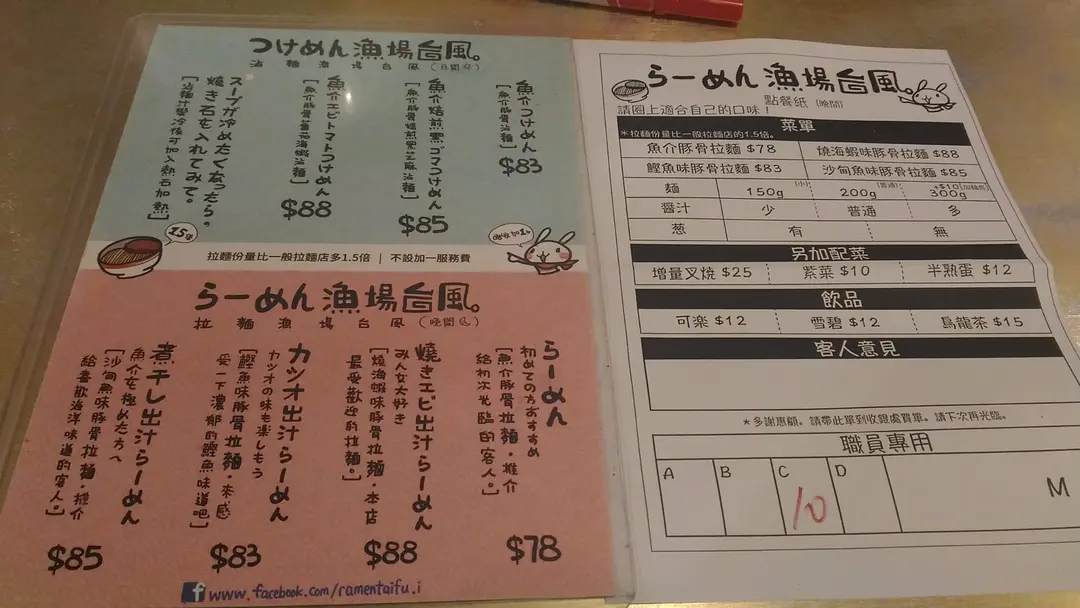 つけめん漁場台風。
沾麵漁場台風(日間)
魚介つけめん
[魚介豚骨沾麵]
$83
魚介焙煎黒ゴマつけめん
[魚介豚骨焙煎黑芝麻沾麵]
$85
魚介エビトマトつけめん
[魚介豚骨蕃茄海蝦沾麵]
$88
スープが冷めたくなったら。
焼き石を入れてみて。
[沾麵汁變冷後可加入熱石加熱]
1.5倍
拉麵份量比一般拉麵店多1.5倍 | 不設加一服務費
らーめん漁場台風。
拉麵漁場台風(晚間)
らーめん
初めての方おすすめ
[魚介豚骨拉麵・推介
給初次光臨的客人。]
$78
焼きエビ出汁らーめん
みんな大好き
[燒海蝦味豚骨拉麵・本店
最受歡迎的拉麵。]
$88
カツオ出汁らーめん
カツオの味も楽しもう
[鰹魚味豚骨拉麵・來感
受一下濃郁的鰹魚味道吧]
$83
煮干し出汁らーめん
魚介を極めた方へ
[沙甸魚味豚骨拉麵・推介
給喜歡海洋味道的客人。]
$85
www.facebook.com/ramentaifu.i
らーめん漁場台風。
點餐紙 (晚間)
請圈上適合自己的口味！
菜單
*拉麵份量比一般拉麵店的1.5倍。
魚介豚骨拉麵 $78 燒海蝦味豚骨拉麵 $88
鰹魚味豚骨拉麵 $83 沙甸魚味豚骨拉麵 $85
麵 150g (小) 200g (普通) 300g +$10(加麵費)
醬汁 少 普通 多
葱 有 無
另加配菜
增量叉燒 $25 紫菜 $10 半熟蛋 $12
飲品
可樂 $12 雪碧 $12 烏龍茶 $15
客人意見
*多謝惠顧。請帶此單到收銀處買單。請下次再光臨。
職員專用
A B C D M
10